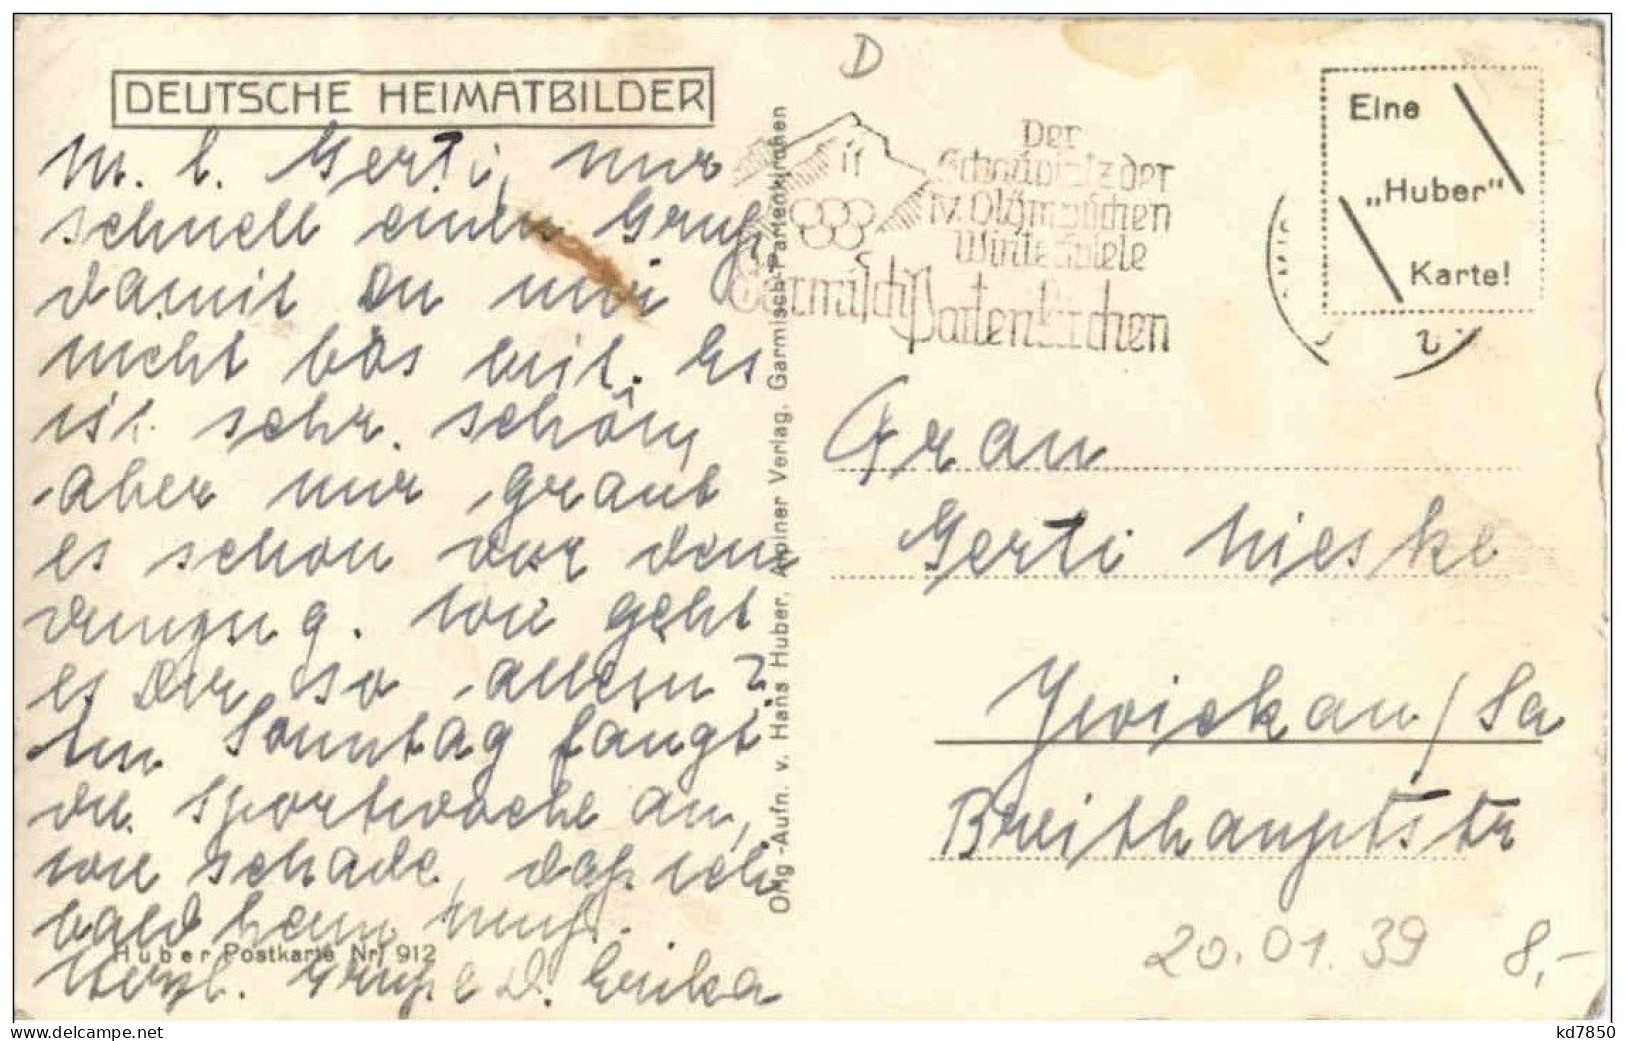 DEUTSCHE HEIMATBILDER
M. l. Gerti, nur
schnell einen Gruß
damit du mir
nicht bös bist. Es
ist sehr. schön,
aber mir graut
es schon vor dem
Umzug. Wie geht
es Dir so allein?
Am Sonntag fangt
die Sportwoche an,
wie schade, daß ich
bald heim muß.
Herzl. Grüße D. Erika
Huber Postkarte Nr. 912
Orig.-Aufn. v. Hans Huber, Alpiner Verlag, Garmisch-Partenkirchen
D
Der
Schauplatz der
IV. Olympischen
Winterspiele
Garmisch Partenkirchen
Eine
„Huber"
Karte!
Frau
Gerti Nieske
Zwickau / Sa
Breithauptstr
20.01.39
8,-
kd7850
www.delcampe.net